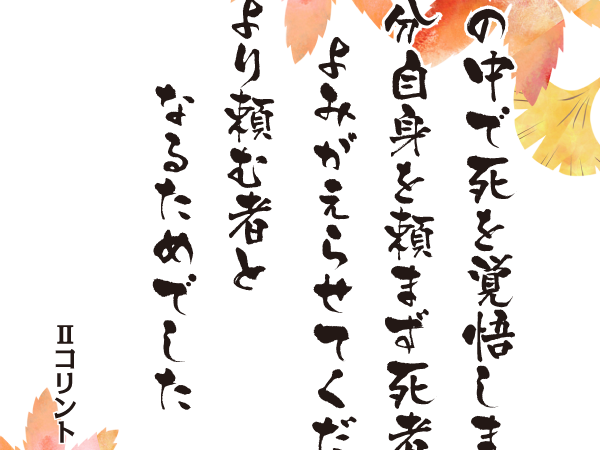 の中で死を覚悟しま
分自身を頼まず死者
よみがえらせてくだ
より頼む者と
なるためでした
Ⅱコリント